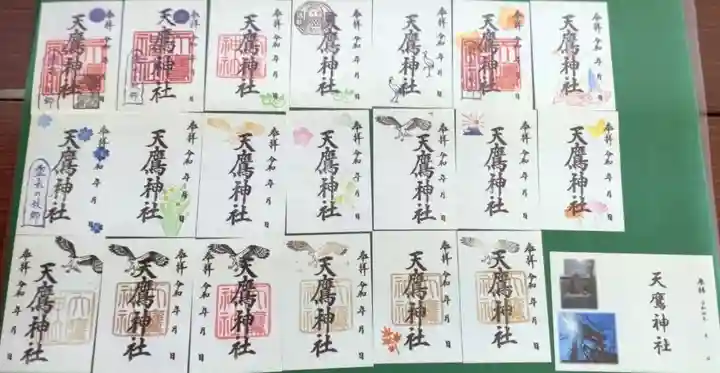 奉拝
天鷹神社
令和 年 月 日
奉拝
天鷹神社
令和 年 月 日
奉拝
天鷹神社
令和 年 月 日
奉拝
天鷹神社
令和 年 月 日
奉拝
天鷹神社
令和 年 月 日
奉拝
天鷹神社
令和 年 月 日
奉拝
天鷹神社
令和 年 月 日
奉拝
天鷹神社
令和 年 月 日
奉拝
天鷹神社
令和 年 月 日
奉拝
天鷹神社
令和 年 月 日
奉拝
天鷹神社
令和 年 月 日
奉拝
天鷹神社
令和 年 月 日
奉拝
天鷹神社
令和 年 月 日
奉拝
天鷹神社
令和 年 月 日
奉拝
天鷹神社
令和 年 月 日
奉拝
天鷹神社
令和 年 月 日
奉拝
天鷹神社
令和 年 月 日
奉拝
天鷹神社
令和 年 月 日
奉拝
天鷹神社
令和 年 月 日
奉拝
天鷹神社
令和 年 月 日
奉拝
天鷹神社